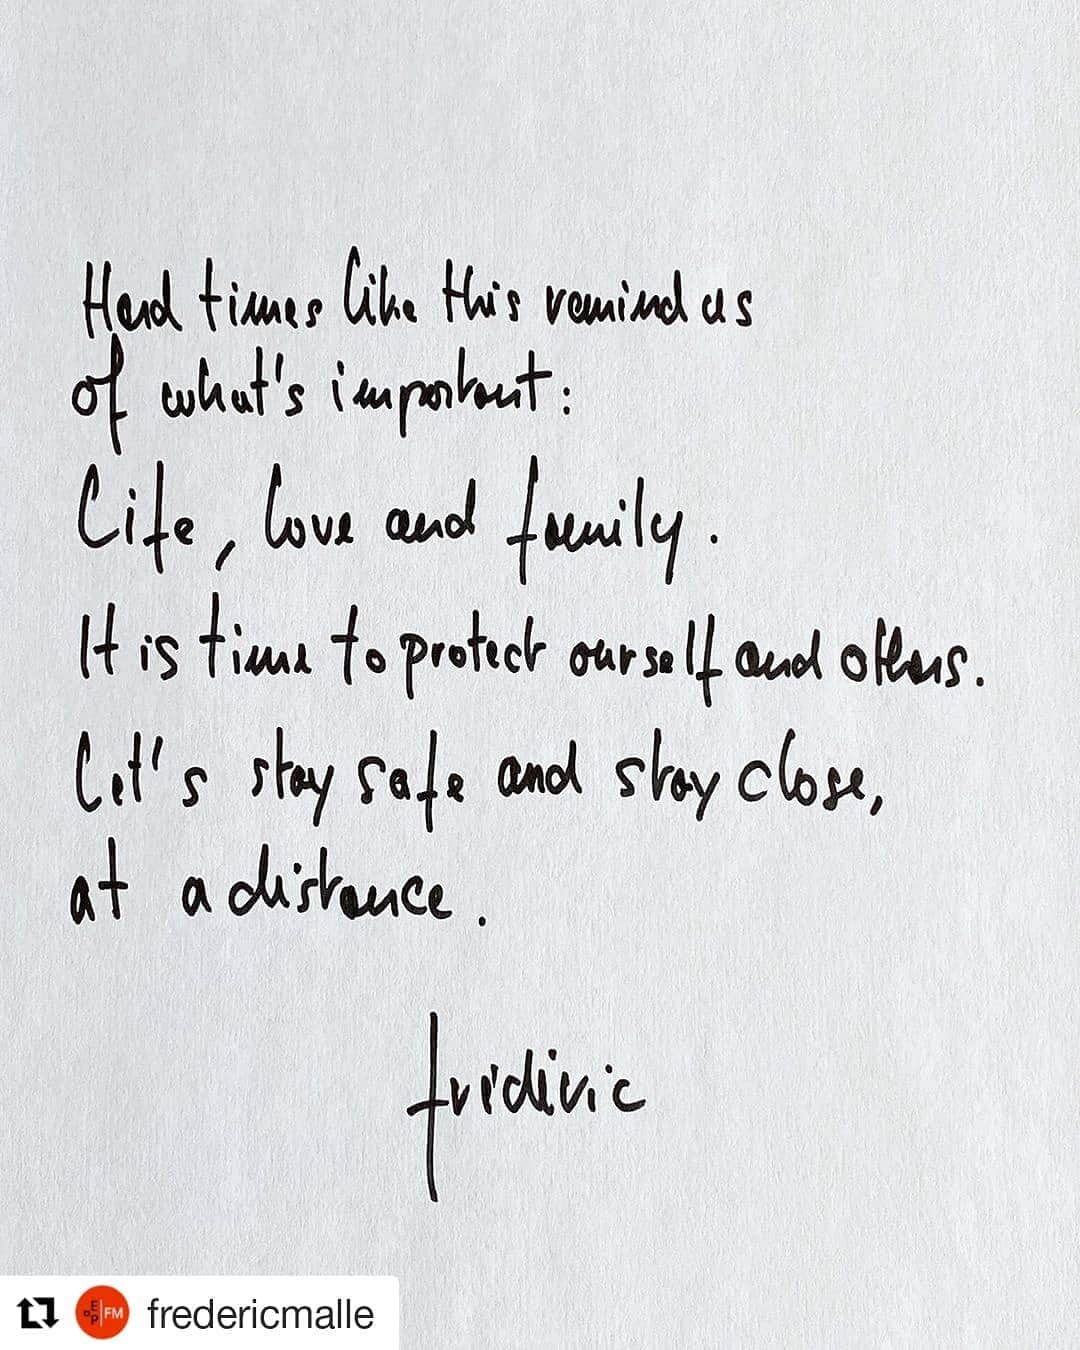 Hard times like this remind us
of what's important:
Life, love and family.
It is time to protect ourself and others.
Let's stay safe and stay close,
at a distance.
frédéric
FM fredericmalle